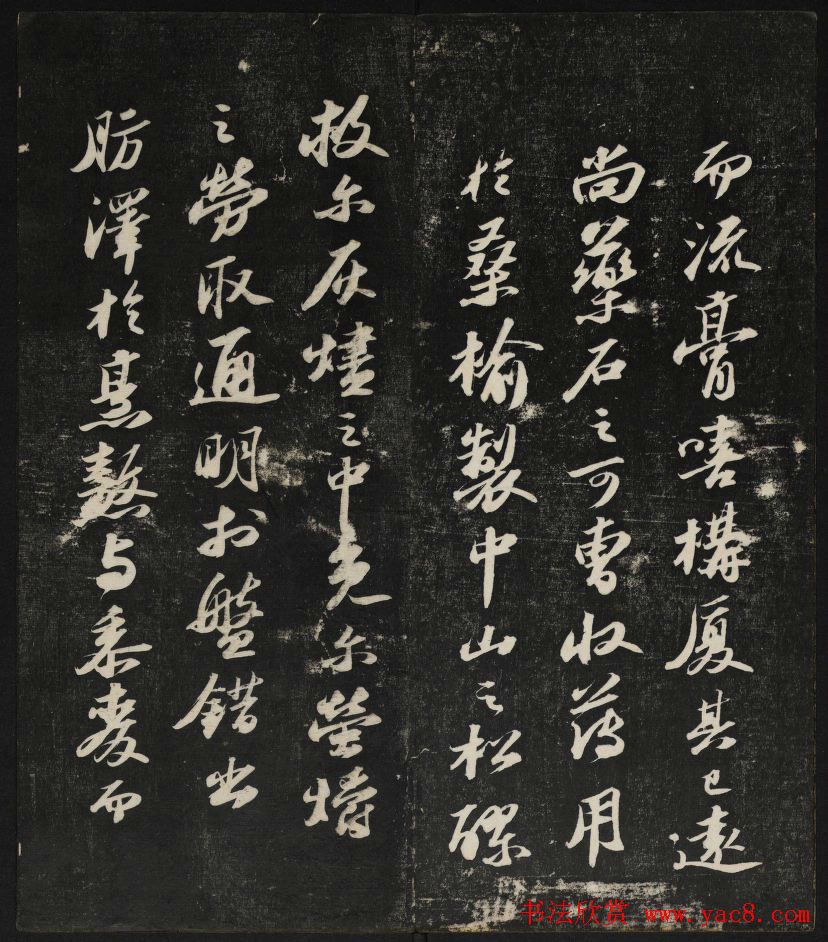 而流膏嗟構厦其已遠
尚藥石之可曹收薄用
於桑榆製中山之松醪
救尓灰燼之中免尓螢爝
之勞取通明於盤錯出
肪澤於烹熬与黍麥而
书法欣赏 www.yac8.com